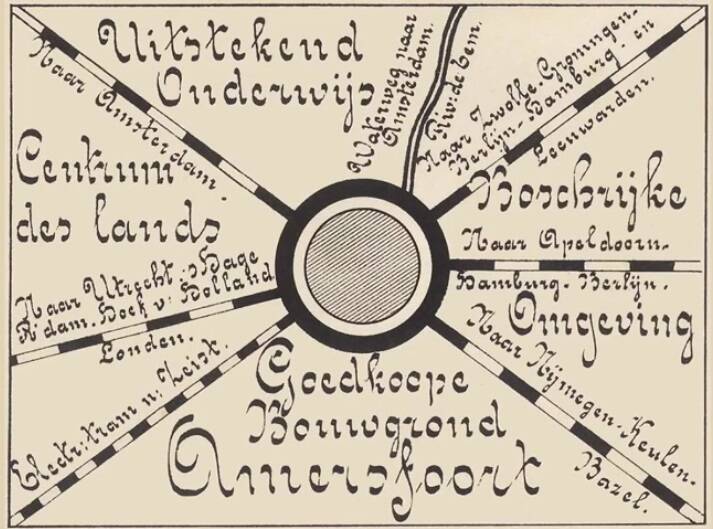 Uitstekend
Onderwijs
Naar Amsterdam.
Waterweg naar
Amsterdam.
Riv: de Eem.
Naar Zwolle-Groningen-
Berlijn-Hamburg- en
Leeuwarden.
Centrum
des lands
Boschrijke
Naar Apeldoorn-
Hamburg-Berlijn.
Omgeving
Naar Utrecht-'s Hage
R'dam-Hoek v: Holland
Londen.
Electr: tram n: Zeist.
Naar Nijmegen-Keulen-
Bazel.
Goedkoope
Bouwgrond
Amersfoort